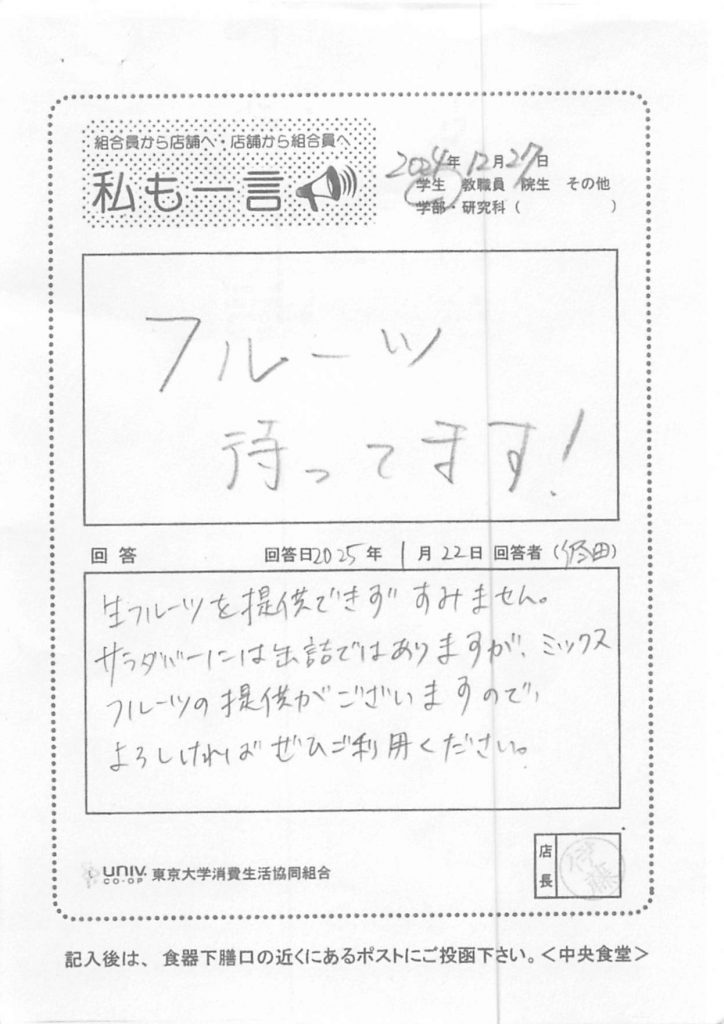 組合員から店舗へ・店舗から組合員へ
私も一言
2024年 12月27日
学生 教職員 院生 その他
学部・研究科 ( )
フルーツ
待ってます!
回答 回答日2025年 1月22日 回答者 (田)
生フルーツを提供できず すみません。
サラダバーには缶詰ではありますが、ミックス
フルーツの提供がございますので、
よろしければ ぜひご利用ください。
店長
伊藤
UNIV. CO-OP 東京大学消費生活協同組合
記入後は、食器下膳口の近くにあるポストにご投函下さい。<中央食堂>